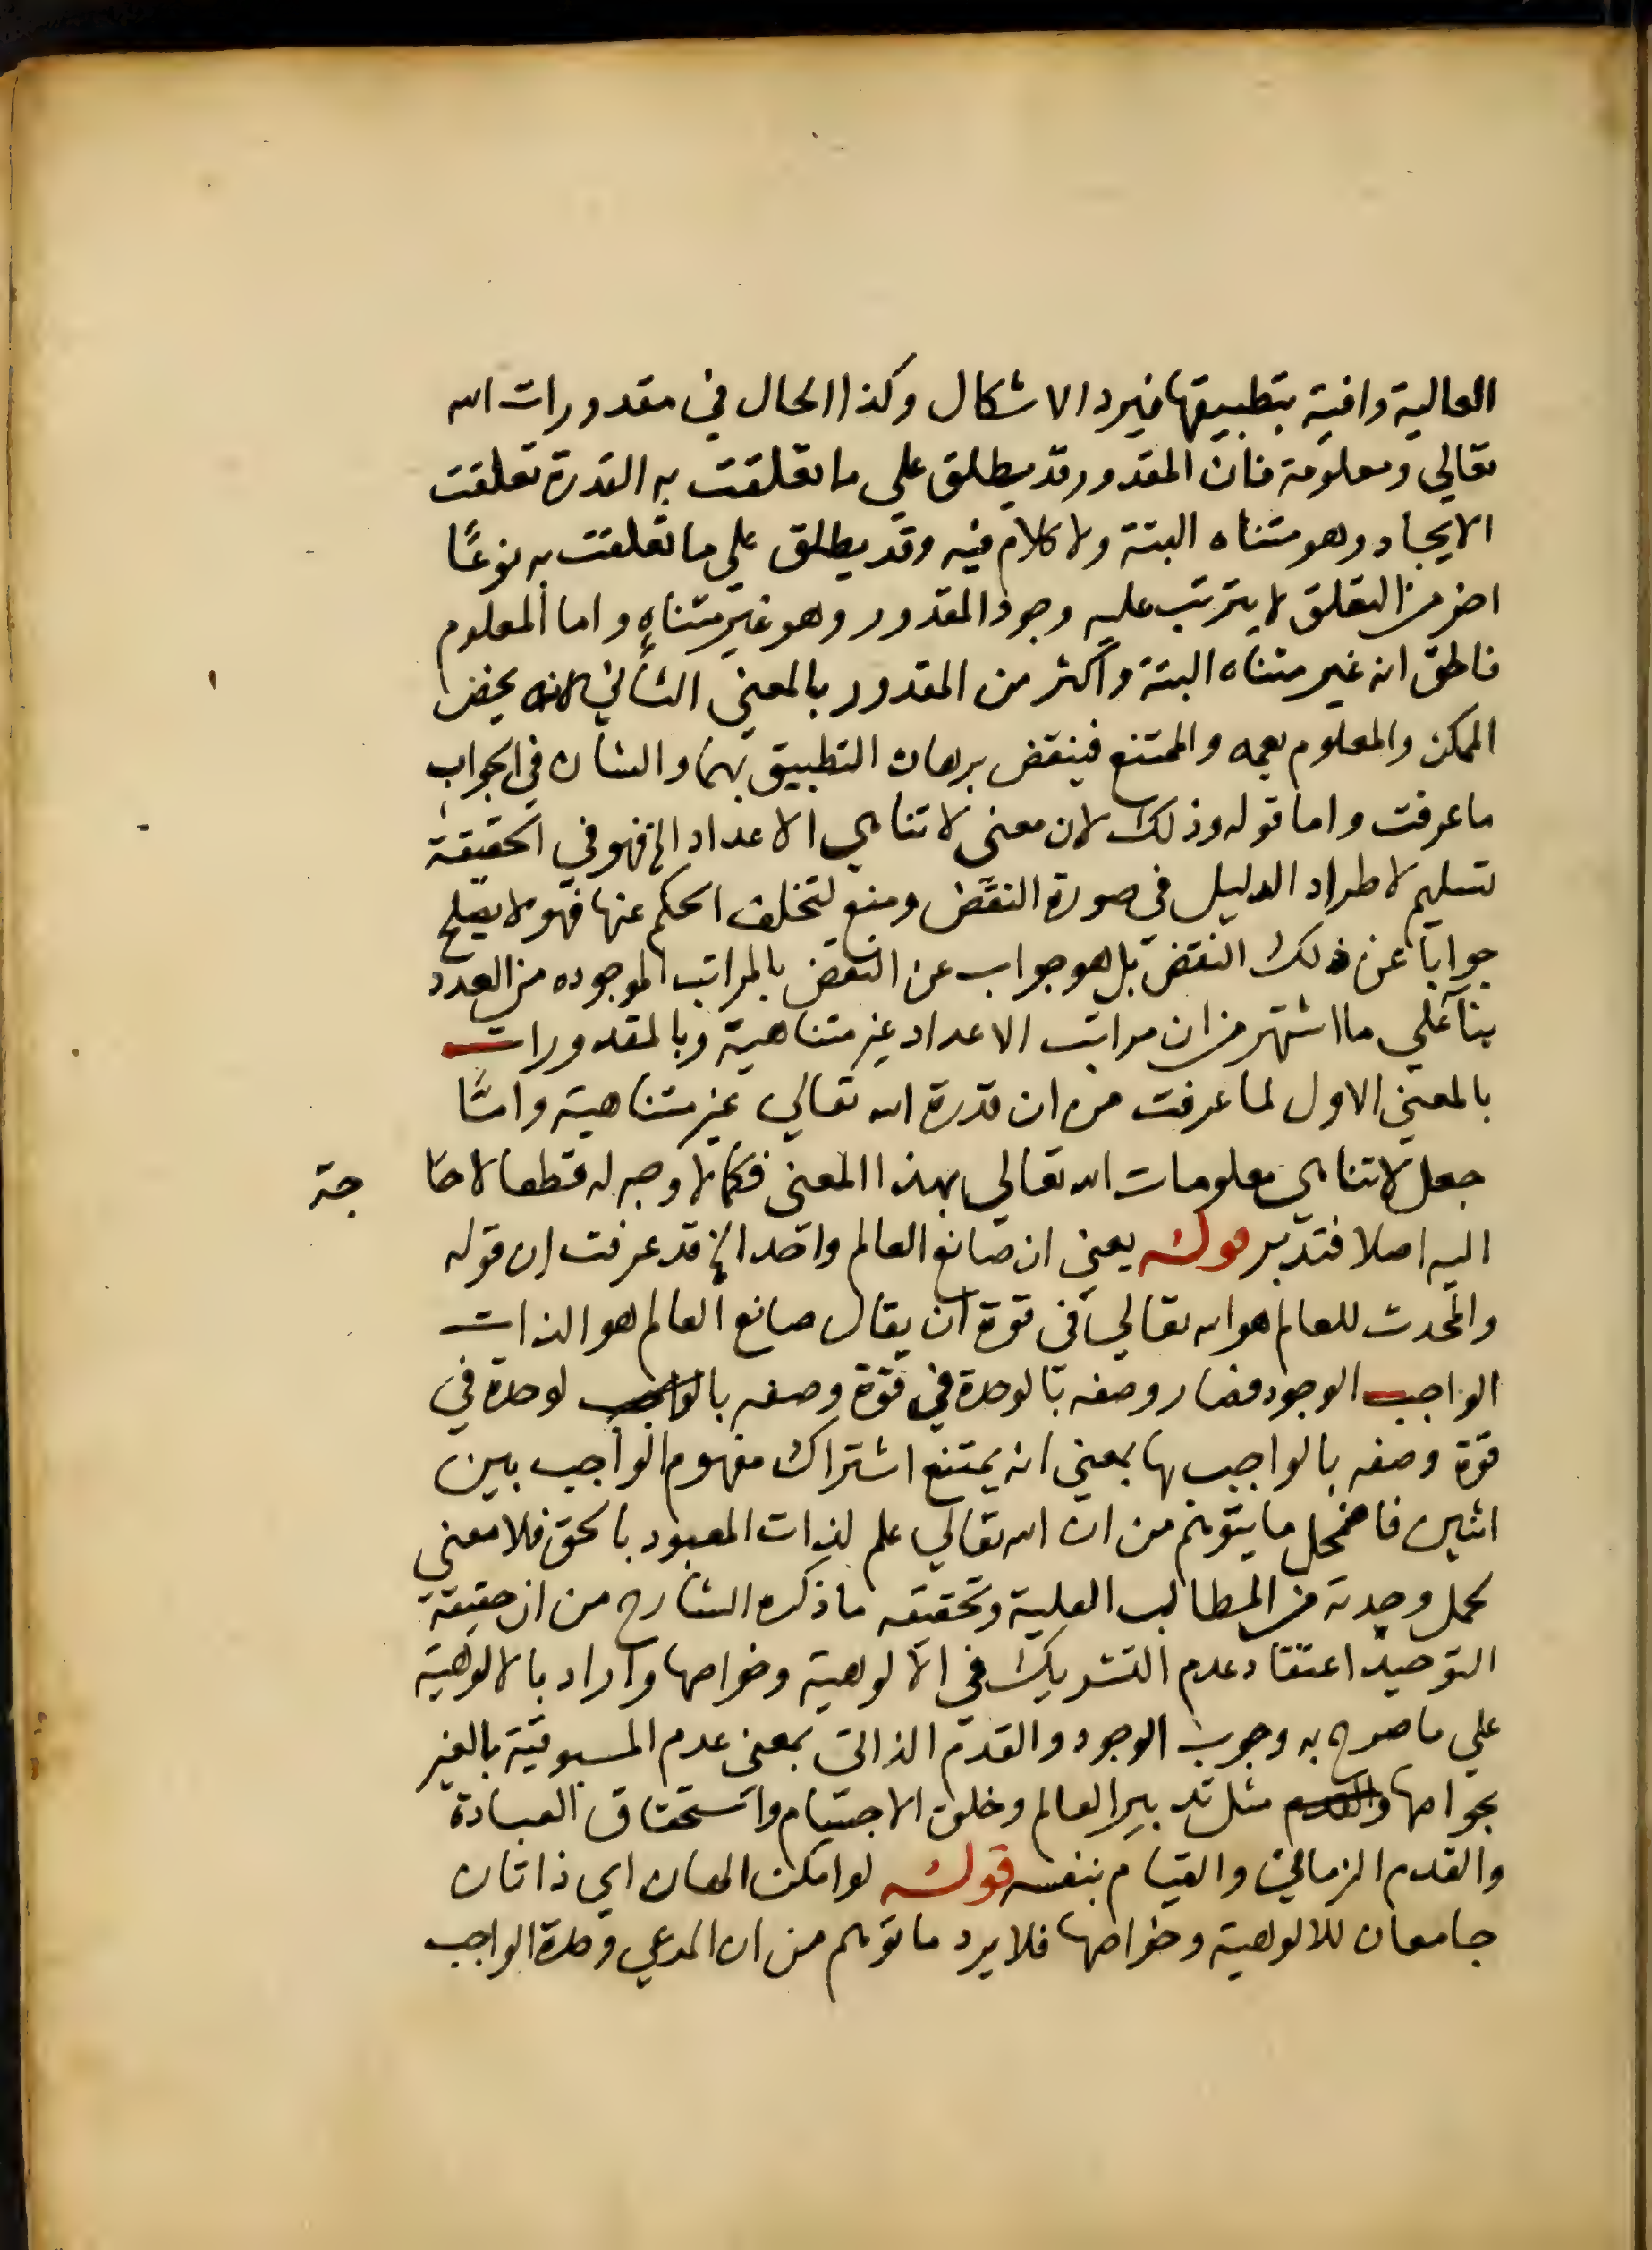 العالية وافية بتطبيقها فيرد الاشكال وكذا الحال في مقدورات الله
تعالي ومعلومة فان المقدور قد يطلق علي ما تعلقت به القدرة تعلقت
الايجاد وهو متناه البتة ولا كلام فيه وقد يطلق علي ما تعلقت به نوعًا
اخر من التعلق لا يترتب عليه وجود المقدور وهو غير متناهٍ واما المعلوم
فالحق انه غير متناه البتة واكثر من المقدور بالمعني الثاني لانه يخص
الممكن والمعلوم يعمه والممتنع فينقض برهان التطبيق بهما والشان في الجواب
ما عرفت واما قوله وذلك لان معني لا تناهي الاعداد الخ فهو في الحقيقة
تسليم لاطراد الدليل في صورة النقض ومنع لتخلف الحكم عنها فهو لا يصلح
جوابا عن ذلك النقض بل هو جواب عن النقض بالمراتب الموجوده من العدد
بنآ علي ما اشتهر من ان مراتب الاعداد غير متناهية وبالمقدورات
بالمعني الاول لما عرفت من ان قدرة الله تعالي غير متناهية وامَّا
جعل لا تناهي معلومات الله تعالي بهذا المعني فكما لا وجه له قطعا لا حا جة
اليه اصلا فتدبر قوله يعني ان صانع العالم واحد الخ قد عرفت ان قوله
والمحدث للعالم هو الله تعالي في قوة ان يقال صانع العالم هو الذات
الواجب الوجود فصار وصفه بالوحدة في قوة وصفه بالواجب لوحدة في
قوة وصفه بالواجب بها بمعني انه يمتنع اشتراك مفهوم الواجب بين
اثنين فاضمحل ما يتوهم من ان الله تعالي علم لذات المعبود بالحق فلا معني
لجعل وحدته من المطالب العلية وتحقيقه ما ذكره الشارح من ان حقيقة
التوحيد اعتقاد عدم التشريك في الالوهية وخواصها واراد بالالوهية
علي ما صرح به وجوب الوجود والقدم الذاتي بمعني عدم المسبوقية بالغير
بخواصها والقدم مثل تدبير العالم وخلق الاجسام واستحقاق العبادة
والقدم الزماني والقيام بنفسه قوله لو امكن الهان اي ذاتان
جامعان للالوهية وخواصها فلا يرد ما توهم من ان المدعي وحدة الواجب